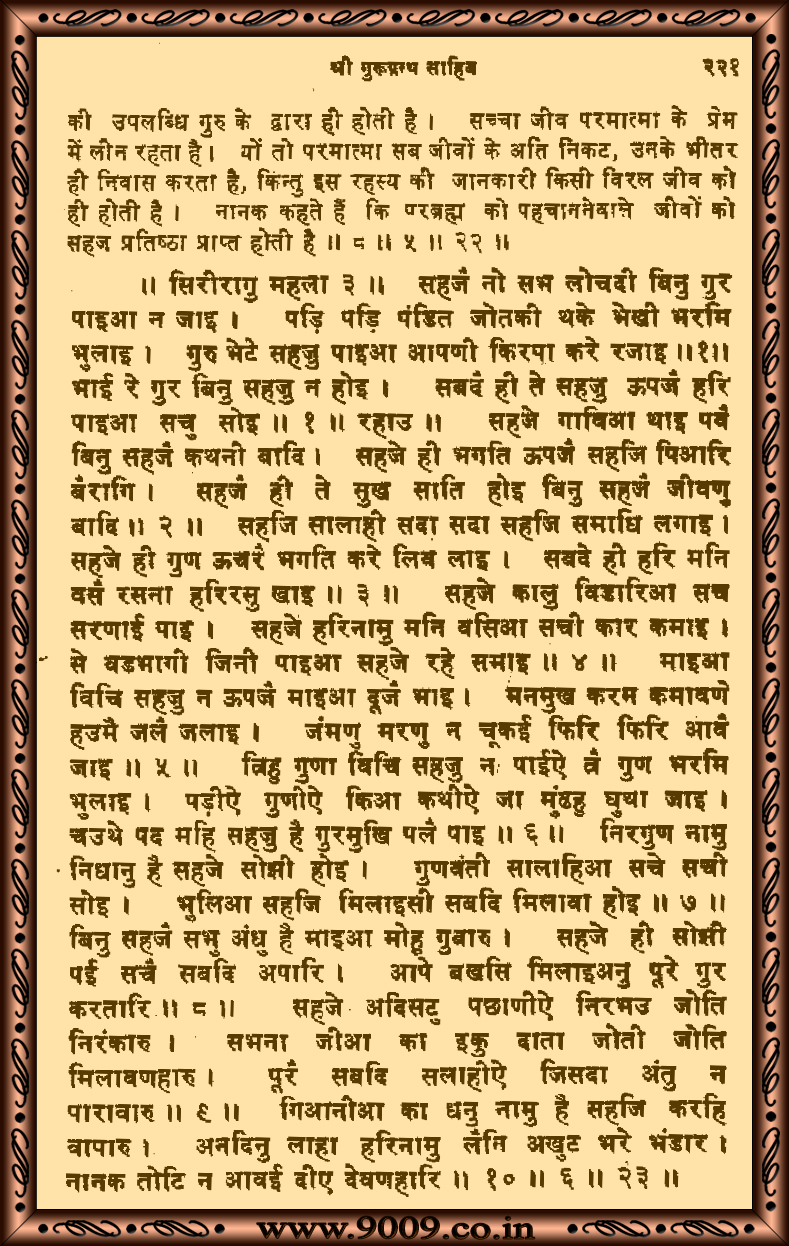 श्री गुरूग्रन्थ साहिब २२१
की उपलब्धि गुरु के द्वारा ही होती है। सच्चा जीव परमात्मा के प्रेम
में लीन रहता है। यों तो परमात्मा सब जीवों के अति निकट, उनके भीतर
ही निवास करता है, किन्तु इस रहस्य की जानकारी किसी विरल जीव को
ही होती है। नानक कहते हैं कि परब्रह्म को पहचाननेवाले जीवों को
सहज प्रतिष्ठा प्राप्त होती है ॥ ८ ॥ ५ ॥ २२ ॥
॥ सिरीरागु महला ३ ॥ सहजै नो सभ लोचदी बिनु गुर
पाइआ न जाइ । पड़ि पड़ि पंडित जोतकी थके भेखी भरमि
भुलाइ । गुरु भेटे सहजु पाइआ आपणी किरपा करे रजाइ ॥१॥
भाई रे गुर बिनु सहजु न होइ । सबदै ही ते सहजु ऊपजै हरि
पाइआ सचु सोइ ॥ १ ॥ रहाउ ॥ सहजे गाविआ थाइ पवै
बिनु सहजै कथनी बादि । सहजे ही भगति ऊपजै सहजि पिआरि
बैरागि । सहजै ही ते सुख साति होइ बिनु सहजै जीवणु
बादि ॥ २ ॥ सहजि सालाही सदा सदा सहजि समाधि लगाइ ।
सहजे ही गुण ऊचरै भगति करे लिव लाइ । सबदे ही हरि मनि
वसै रसना हरिरसु खाइ ॥ ३ ॥ सहजे कालु विडारिआ सच
सरणाई पाइ । सहजे हरिनामु मनि वसिआ सची कार कमाइ ।
से वडभागी जिनी पाइआ सहजे रहे समाइ ॥ ४ ॥ माइआ
विचि सहजु न ऊपजै माइआ दूजै भाइ । मनमुख करम कमावणे
हउमै जलै जलाइ । जंमणु मरणु न चूकई फिरि फिरि आवै
जाइ ॥ ५ ॥ त्रिहु गुणा विचि सहजु न पाईऐ त्रै गुण भरमि
भुलाइ । पड़ीऐ गुणीऐ किआ कथीऐ जा मुंढहु घुथा जाइ ।
चउथे पद महि सहजु है गुरमुखि पलै पाइ ॥ ६ ॥ निरगुण नामु
निधानु है सहजे सोझी होइ । गुणवंती सालाहिआ सचे सची
सोइ । भुलिआ सहजि मिलाइसी सबदि मिलावा होइ ॥ ७ ॥
बिनु सहजै सभु अंधु है माइआ मोहु गुबारु । सहजे ही सोझी
पई सचै सबदि अपारि । आपे बखसि मिलाइअनु पूरे गुर
करतारि ॥ ८ ॥ सहजे अदिसटु पछाणीऐ निरभउ जोति
निरंकारु । सभना जीआ का इकु दाता जोती जोति
मिलावणहारु । पूरै सबदि सलाहीऐ जिसदा अंतु न
पारावारु ॥ ९ ॥ गिआनीआ का धनु नामु है सहजि करहि
वापारु । अनदिनु लाहा हरिनामु लैनि अखुट भरे भंडार ।
नानक तोटि न आवई दीए देवणहारि ॥ १० ॥ ६ ॥ २३ ॥
www.9009.co.in